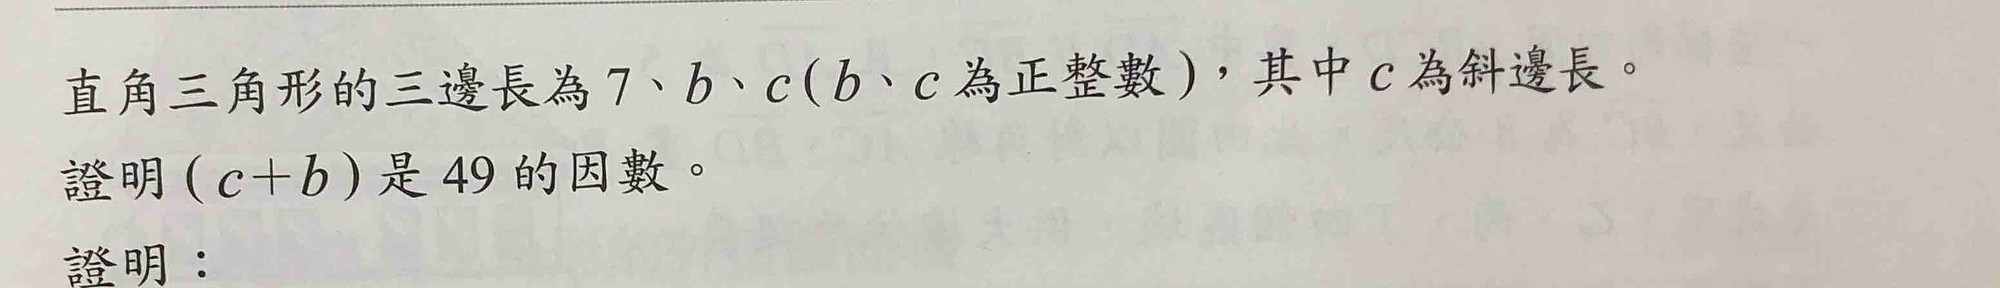 直角三角形的三邊長為 7、b、c(b、c 為正整數)，其中 c 為斜邊長。
證明(c+b)是 49 的因數。
證明：